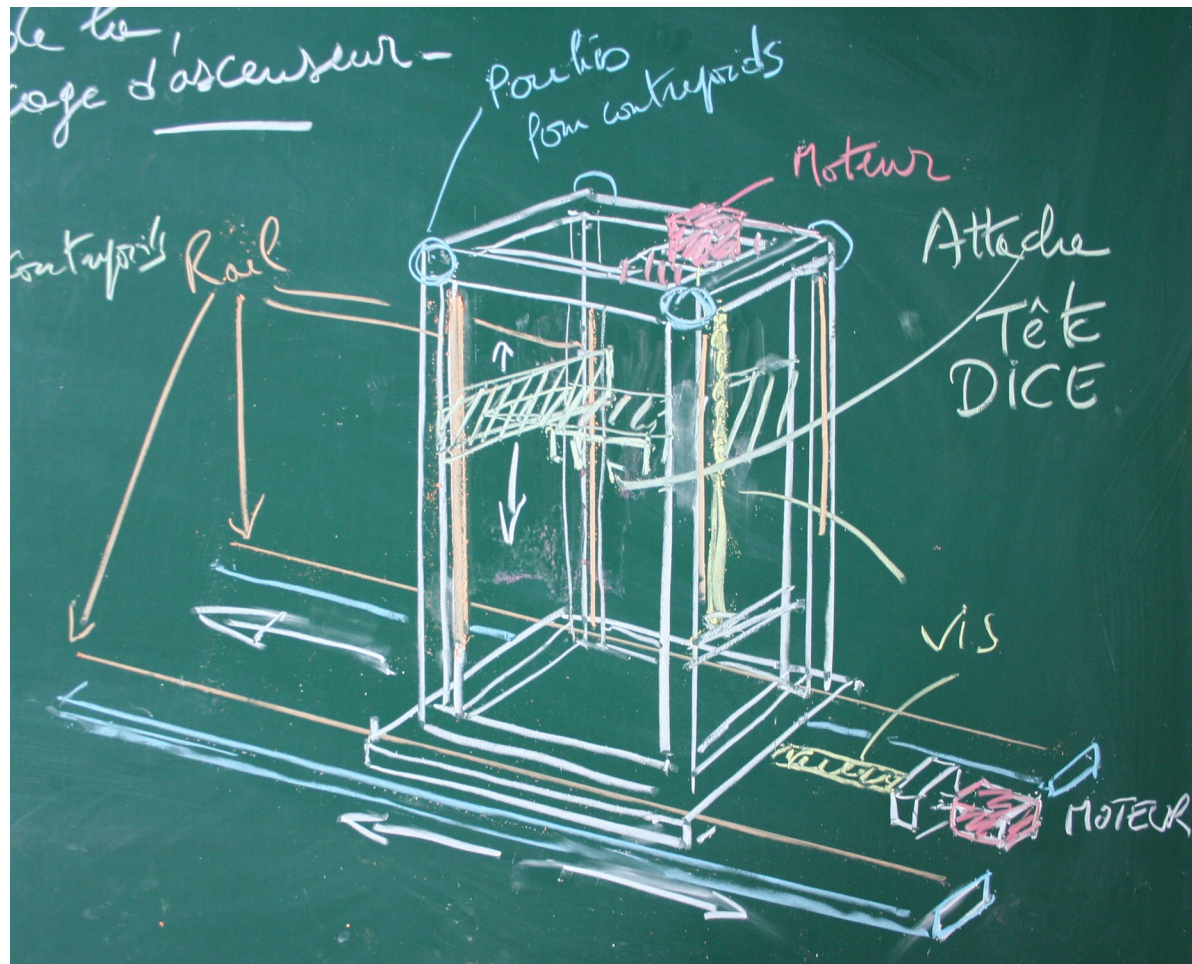 de la
cage d'ascenseur
Poulies
pour contrepoids
Moteur
contrepoids
Rail
Attache
Tête
DICE
vis
MOTEUR